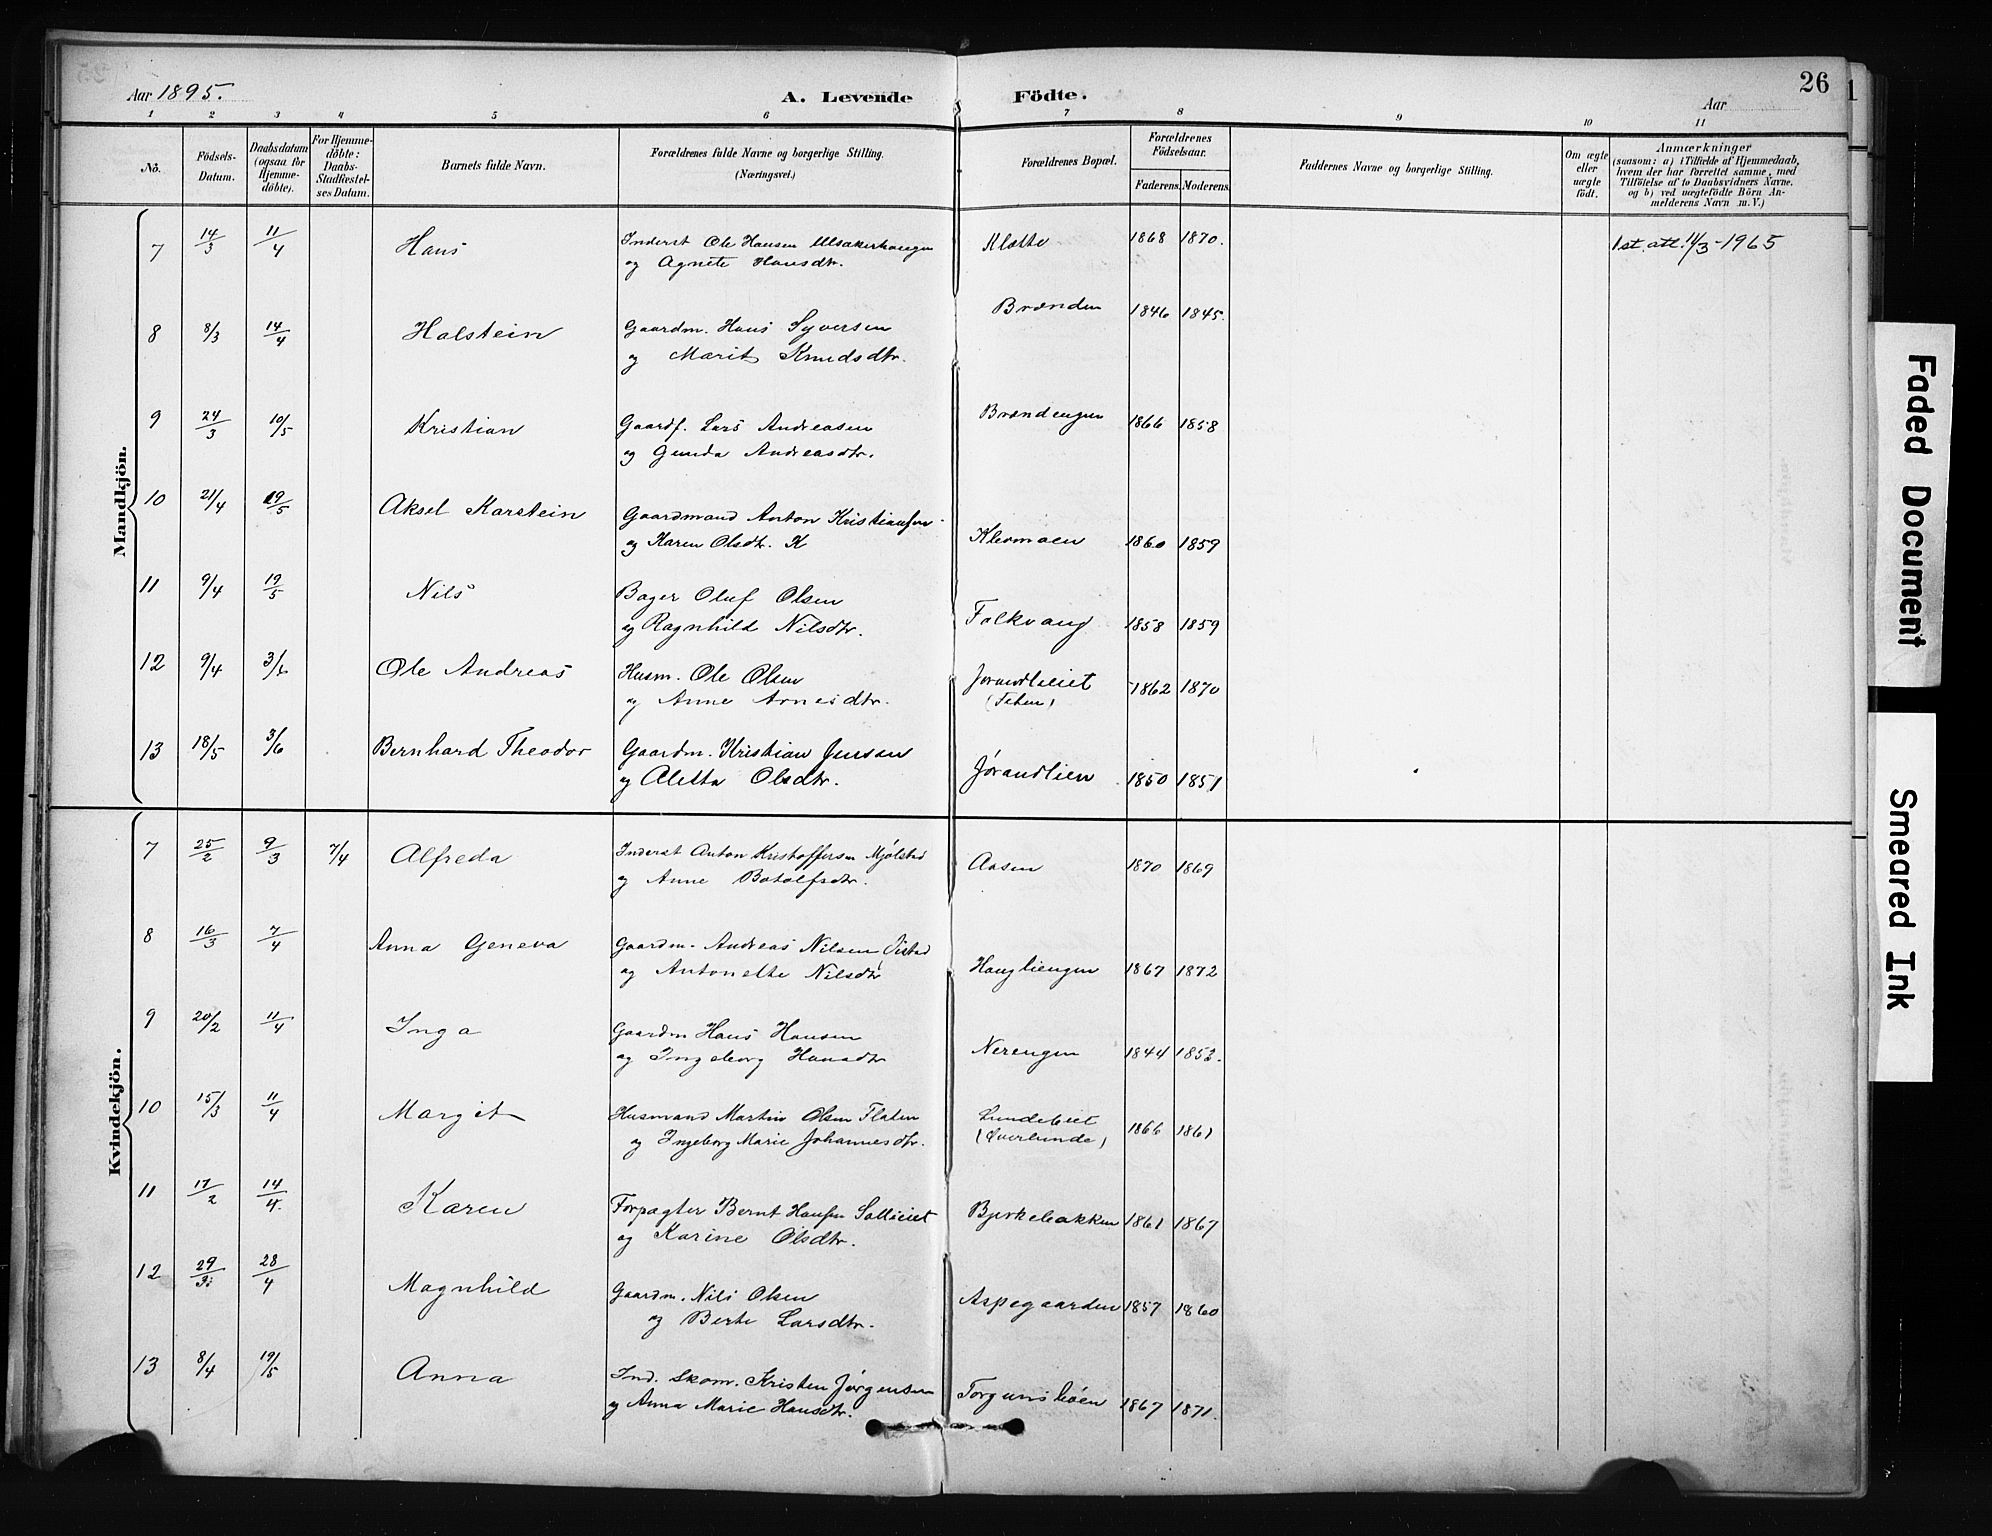 26
Aar 1895.
A. Levende Födte.
Aar
1 2 3 4 5 6 7 8 9 10 11
No.
Födsels-Datum.
Daabsdatum (ogsaa for Hjemme-döbte).
For Hjemme-döbte: Daabs-Stadfæstel-ses Datum.
Barnets fulde Navn.
Forældrenes fulde Navne og borgerlige Stilling.
(Næringsvei.)
Forældrenes Bopæl.
Forældrenes Födselsaar.
Faderens. Moderens.
Faddernes Navne og borgerlige Stilling.
Om ægte eller uægte födt.
Anmærkninger
(saasom: a) i Tilfælde af Hjemmedaab, hvem der har forrettet samme, med Tilföielse af to Daabsvidners Navne, og b) ved uægtefödte Börn An-melderens Navn m. V.)
Mandkjön.
7 14/3 11/4 Hans Inderst Ole Hansen Ulsakerhaugen Klætte 1868 1870. 1st. att. 11/3-1965
og Agnete Hansdtr.
8 8/3 14/4 Halstein Gaardm. Hans Syversen Brænden 1846 1845.
og Marit Knudsdtr.
9 24/3 10/5 Kristian Gaardf. Lars Andreasen Brændengen 1866 1858
og Gunda Andreasdtr.
10 21/4 19/5 Aksel Karstein Gaardmand Anton Kristiansen
og Karen Olsdtr. K Klevmoen 1860 1859
11 9/4 19/5 Nils Bager Oluf Olsen
og Ragnhild Nilsdtr. Folkvang 1858 1859
12 9/4 3/6 Ole Andreas Husm. Ole Olsen
og Anne Arnesdtr. Jørandlieiet 1862 1870
13 18/5 3/6 Bernhard Theodor Gaardm. Kristian Jensen
og Aletta Olsdtr. Jørandlien 1850 1851
Kvindekjön.
7 25/2 9/3 7/4 Alfreda Inderst Anton Kristoffersen Mjølstad Aasen 1870 1869
og Anne Botolfsdtr.
8 16/3 7/4 Anna Geneva Gaardm. Andreas Nilsen Øistad
og Antonette Nilsdtr Haugliengen 1867 1872
9 20/2 11/4 Inga Gaardm Hans Hansen
og Ingeborg Hansdtr Nerengen 1844 1853.
10 15/3 11/4 Margit Husmand Martin Olsen Flaten Lundeeiet
og Ingeborg Marie Johannesdtr. (Øverlunde) 1866 1861
11 17/2 14/4. Karen Forpagter Bernt Hansen Sollieiet Bjerkebakken 1861 1867
og Karine Olsdtr.
12 29/3 28/4 Magnhild Gaardm. Nils Olsen Aspegaarden 1857 1860
og Berte Larsdtr.
13 8/4 19/5 Anna Ind. Skom. Kristen Jørgensen
og Anna Marie Hansdtr. 1867 1871.
Faded Document
Smeared Ink